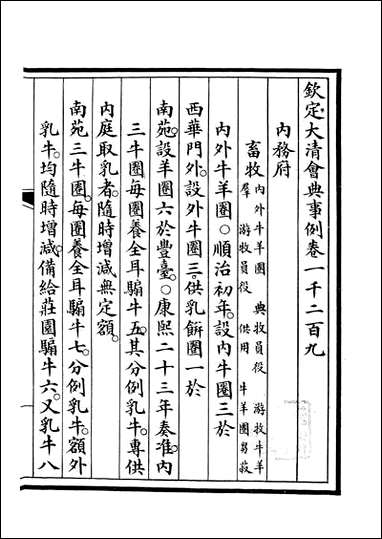 欽定大清會典事例卷一千二百九
內務府
畜牧 內外牛羊圈 典牧員役 游牧牛羊
羣 游牧員役 供用 牛羊圈芻菽
內外牛羊圈○順治初年。設內牛圈三於
西華門外。設外牛圈三。供乳餅圈一於
南苑。設羊圈六於豐臺。○康熙二十三年奏准。內
三牛圈每圈養全耳騸牛五。其分例乳牛。專供
內庭取乳者。隨時增減無定額。
南苑三牛圈。每圈養全耳騸牛七。分例乳牛。額外
乳牛。均隨時增減。備給莊園騸牛六。又乳牛八